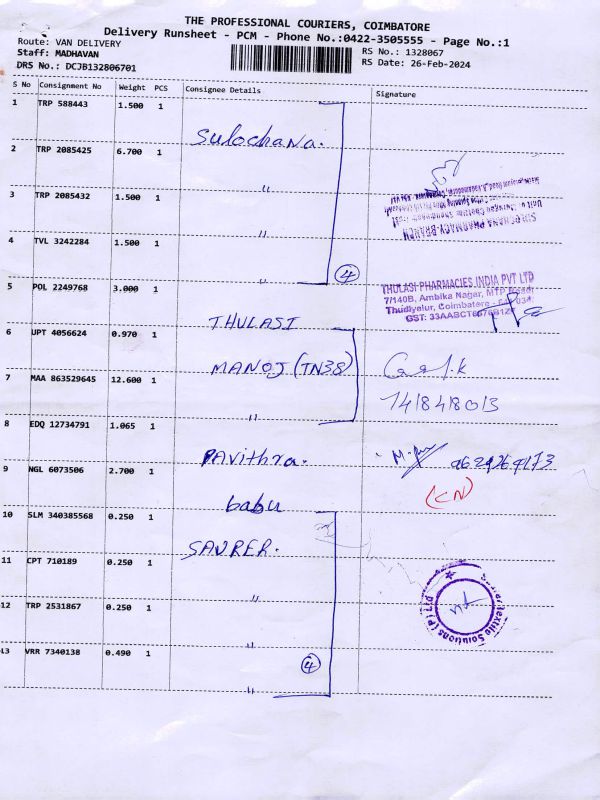 THE PROFESSIONAL COURIERS, COIMBATORE
Delivery Runsheet - PCM - Phone No.:0422-3505555 - Page No.:1
Route: VAN DELIVERY
Staff: MADHAVAN
DRS No.: DCJB132806701
RS No.: 1328067
RS Date: 26-Feb-2024
S No Consignment No Weight PCS Consignee Details Signature
1 TRP 588443 1.500 1 Sulochana.
2 TRP 2085425 6.700 1 "
3 TRP 2085432 1.500 1 "
4 TVL 3242284 1.500 1 " 4
SULOCHANA PHARMACY BRANCH
5 POL 2249768 3.000 1 THULASI
THULASI PHARMACIES INDIA PVT LTD
7/140B, Ambika Nagar, MTP Road
Thudiyalur, Coimbatore - 641 034.
6 UPT 4056624 0.970 1 MANOJ (TN38)
7 MAA 863529645 12.600 1 "
8 EDQ 12734791 1.065 1 Pavithra.
9 NGL 6073506 2.700 1 babu
(CN)
10 SLM 340385568 0.250 1 SAURER.
11 CPT 710189 0.250 1 "
12 TRP 2531867 0.250 1 "
13 VRR 7340138 0.490 1 " 4
Textile Solutions (P) Ltd